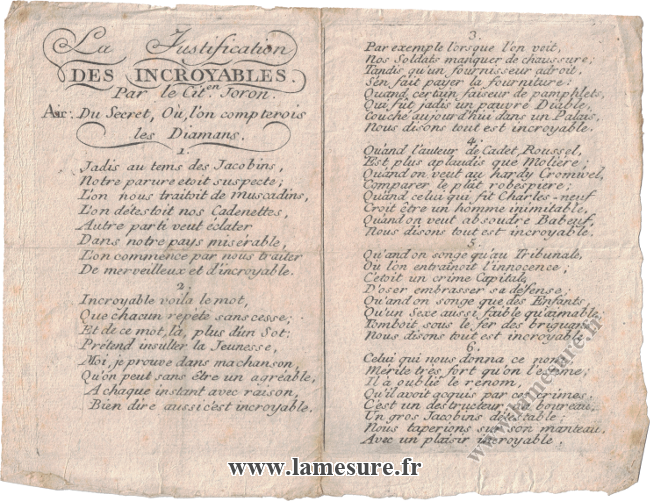 La Justification
DES INCROYABLES.
Par le Cit.en Joron.
Air: Du Secret, Où l'on compterois
les Diamans.
1.
Jadis au tems des Jacobins,
Notre parure etoit suspecte;
L'on nous traitoit de muscadins,
L'on détestoit nos Cadenettes,
Autre parti veut eclater
Dans notre pays misérable,
L'on commence par nous traiter
De merveilleux et d'incroyable.
2.
Incroyable voila le mot,
Que chacun repète sans cesse;
Et de ce mot, là, plus d'un Sot:
Prétend insulter la Jeunesse,
Moi, je prouve dans ma chanson,
Qu'on peut sans être un agréable,
A chaque instant avec raison,
Bien dire aussi c'est incroyable.
3.
Par exemple lorsque l'on voit,
Nos Soldats manquer de chaussure;
Tandis qu'un fournisseur adroit,
S'en fait payer la fourniture:
Quand certain faiseur de pamphlets,
Qui fut jadis un pauvre Diable,
Couché aujourd'hui dans un Palais,
Nous disons tout est incroyable.
4.
Quand l'auteur de Cadet Roussel,
Est plus aplaudis que Molière;
Quand on veut au hardy Cromwel,
Comparer le plat robespiere;
Quand celui qui fit Charles-neuf
Croit être un homme inimitable,
Quand on veut absoudre Babeuf,
Nous disons tout est incroyable.
5.
Qu'and on songe qu'au Tribunale,
Où l'on entrainoit l'innocence;
C'etoit un crime Capital,
D'oser embrasser sa défense;
Qu'and on songe que des Enfants
Qu'un Sexe aussi faible qu'aimable;
Tomboit sous le fer des brigants,
Nous disons tout est incroyable.
6.
Celui qui nous donna ce nom,
Mérite très fort qu'on l'estime;
Il à oublié le renom,
Qu'il avoit acquis par ces crimes,
C'est un destructeur, un boureau,
Un gros Jacobins détestable;
Nous taperions sur son manteau,
Avec un plaisir incroyable.
www.lamesure.fr
www.lamesure.fr